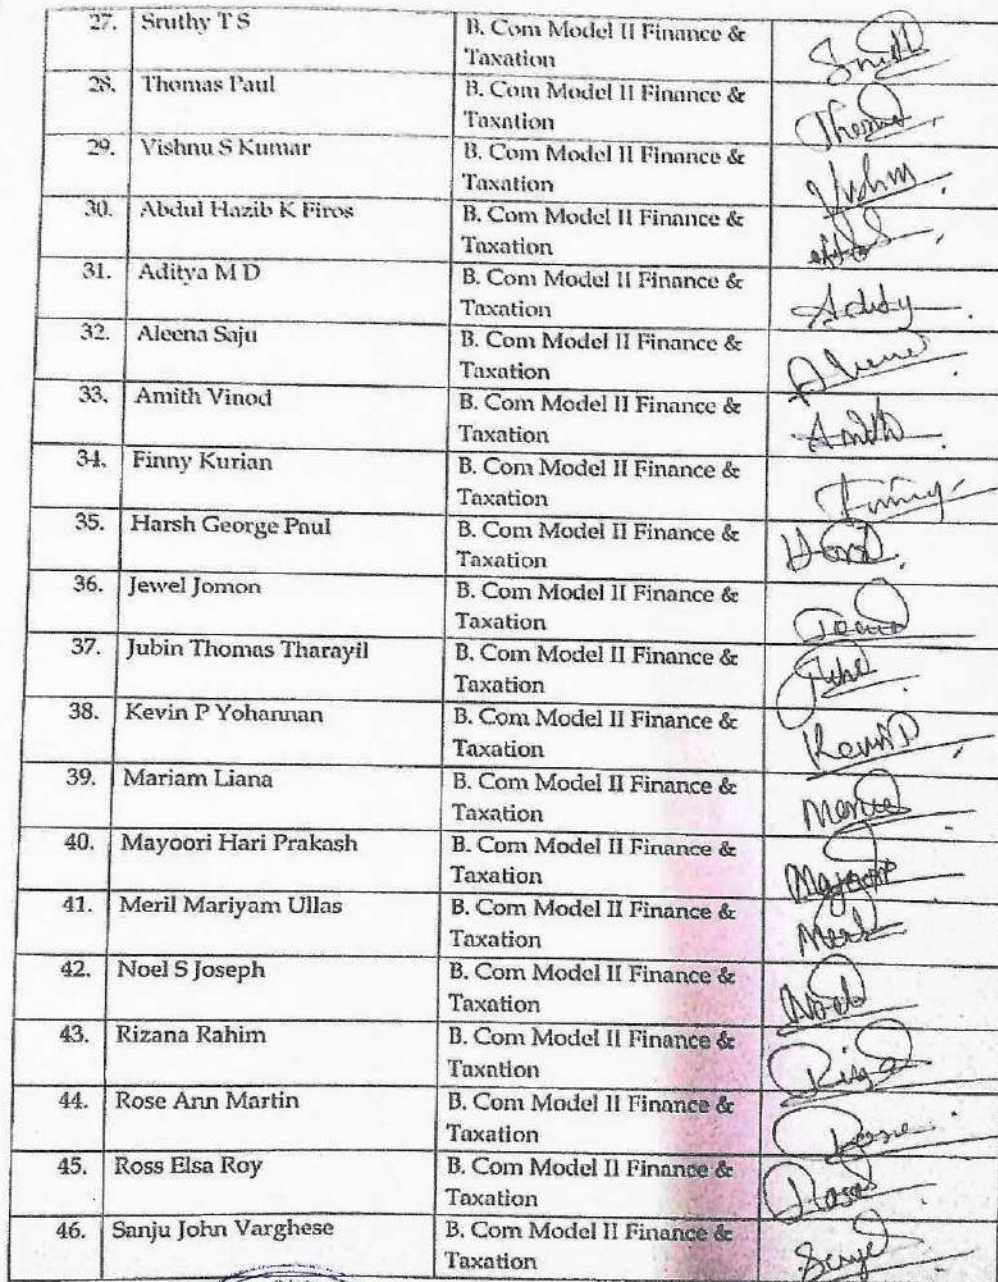 27. Sruthy T S B. Com Model II Finance &
Taxation
28. Thomas Paul B. Com Model II Finance &
Taxation
Thomas
29. Vishnu S Kumar B. Com Model II Finance &
Taxation
Vishnu
30. Abdul Hazib K Firos B. Com Model II Finance &
Taxation
31. Aditya M D B. Com Model II Finance &
Taxation
32. Aleena Saju B. Com Model II Finance &
Taxation
33. Amith Vinod B. Com Model II Finance &
Taxation
Amith
34. Finny Kurian B. Com Model II Finance &
Taxation
Finny
35. Harsh George Paul B. Com Model II Finance &
Taxation
36. Jewel Jomon B. Com Model II Finance &
Taxation
37. Jubin Thomas Tharayil B. Com Model II Finance &
Taxation
38. Kevin P Yohannan B. Com Model II Finance &
Taxation
39. Mariam Liana B. Com Model II Finance &
Taxation
40. Mayoori Hari Prakash B. Com Model II Finance &
Taxation
41. Meril Mariyam Ullas B. Com Model II Finance &
Taxation
42. Noel S Joseph B. Com Model II Finance &
Taxation
43. Rizana Rahim B. Com Model II Finance &
Taxation
44. Rose Ann Martin B. Com Model II Finance &
Taxation
45. Ross Elsa Roy B. Com Model II Finance &
Taxation
46. Sanju John Varghese B. Com Model II Finance &
Taxation